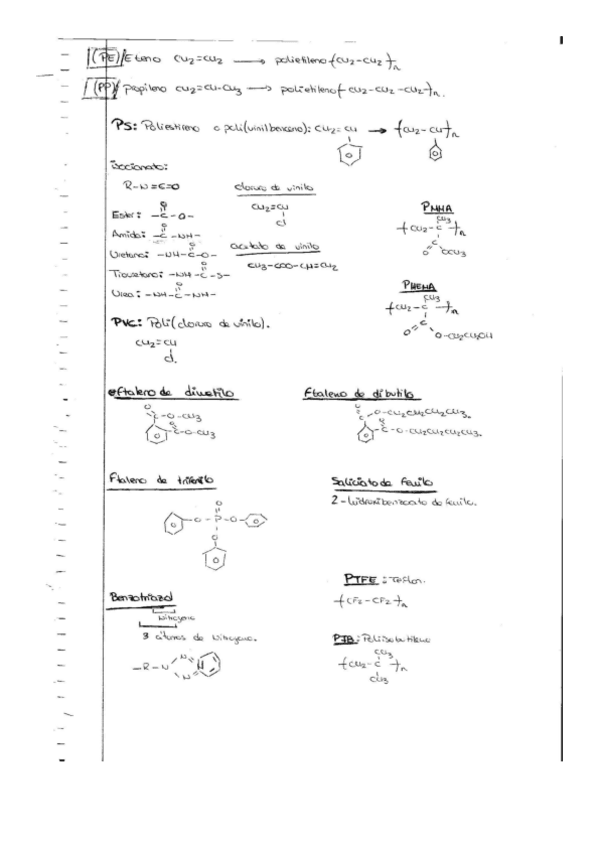 (PE) Eteno CH2=CH2 → polietileno [CH2-CH2]n
(PP) propileno CH2=CH-CH3 → polietileno [CH2-CH2-CH2]n.
PS: Poliestireno o poli(vinilbenceno): CH2=CH → [CH2-CH]n
isocianato:
R-N=C=O
Ester: -C-O-
O
Amida: -C-NH-
O
Uretano: -NH-C-O-
O
Tiouretano: -NH-C-S-
O
Urea: -NH-C-NH-
O
cloruro de vinilo
CH2=CH
Cl
acetato de vinilo
CH3-COO-CH=CH2
PMMA
CH3
[CH2-C]n
C
O OCH3
PHEMA
CH3
[CH2-C]n
C
O O-CH2CH2OH
PVC: Poli(cloruro de vinilo).
CH2=CH
Cl
eftaleno de dimetilo
O
C-O-CH3
O
C-O-CH3
Ftaleno de dibutilo
O
C-O-CH2CH2CH2CH3.
O
C-O-CH2CH2CH2CH3.
Ftaleno de trifenilo
O
O-P-O
O
Salicilato de fenilo
2-hidroxibenzoato de fenilo.
Benzotriazol
Nitrogeno
3 átomos de Nitrogeno.
-R-N
N
N
PTFE: Teflon.
[CF2-CF2]n
PIB: Poliisobutileno
CH3
[CH2-C]n
CH3